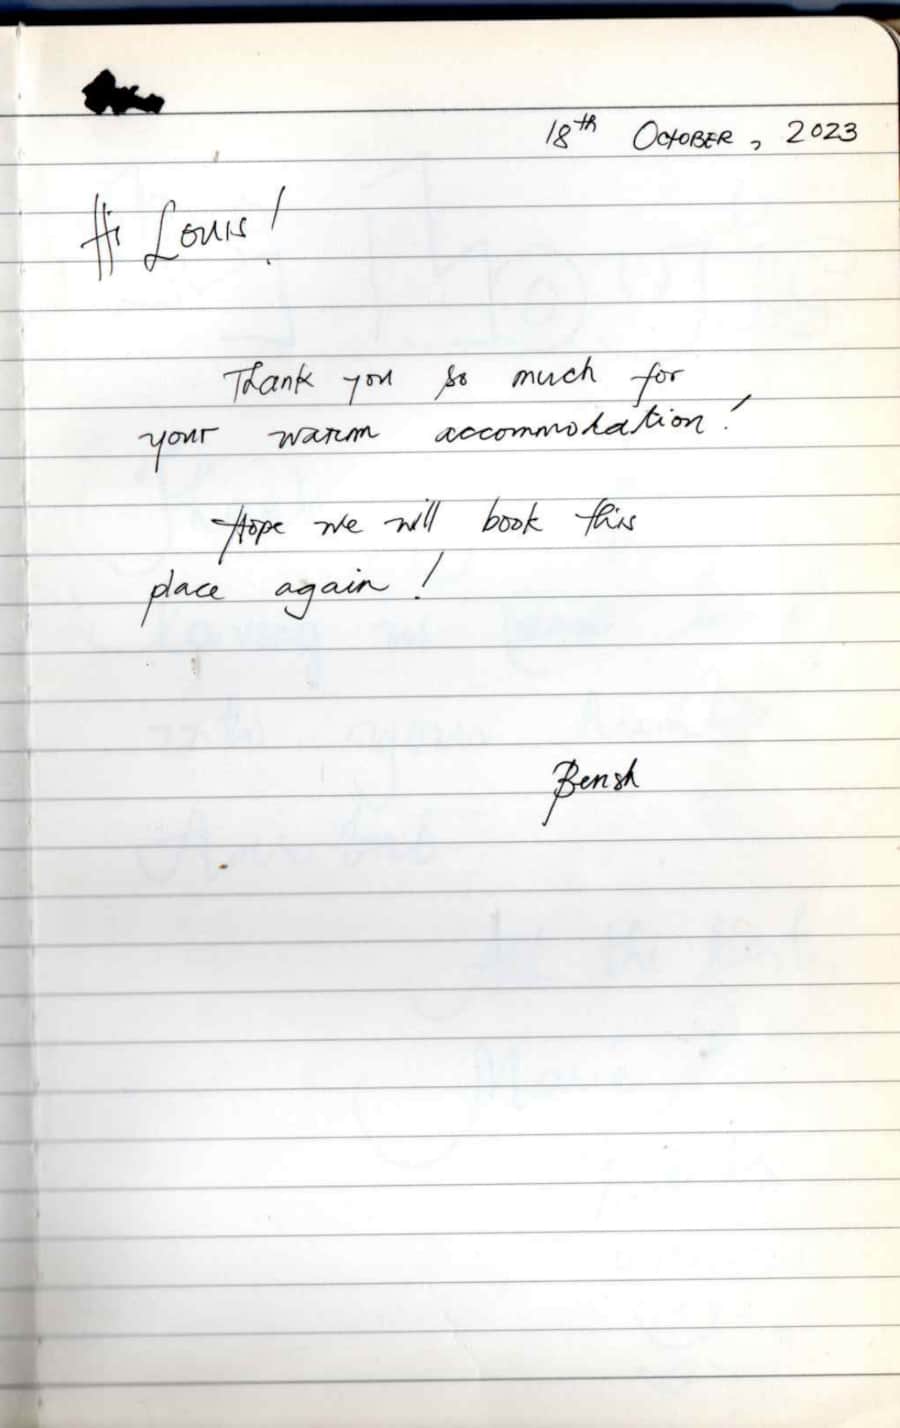 18th October, 2023
Hi Louis!
Thank you so much for
your warm accommodation!
Hope we will book this
place again!
Bensh